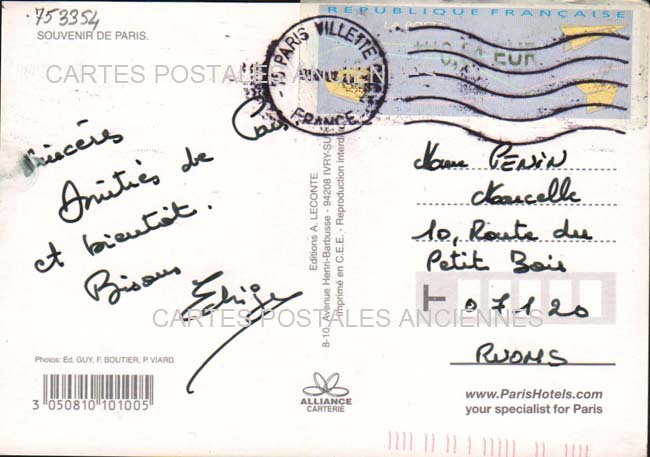 753354
SOUVENIR DE PARIS.
RÉPUBLIQUE FRANÇAISE
LA POSTE
0,54 EUR
PARIS VILLETTE
FRANCE
CARTES POSTALES ANCIENNES
Sincères
Amitiés de Paris
et bientôt.
Bisous
Editions A. LECONTE
8-10, Avenue Henri-Barbusse - 94208 IVRY-SU
Imprimé en C.E.E. - Reproduction interdi
Mme PENIN
Marcelle
10, Route du
Petit Bois
07120
RUOMS
CARTES POSTALES ANCIENNES
Photos: Ed. GUY, F. BOUTIER, P. VIARD.
3 050810 101005
ALLIANCE
CARTERIE
www.ParisHotels.com
your specialist for Paris